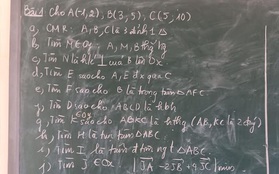 Bài 1 Cho A(-1,2), B(3,5), C(5,10)
a, CMR: A,B,C là 3 đỉnh 1 Δ
b, Tìm M∈Oy: A,M,B thg hg
c, Tìm N là h/c ⊥ của B lên Ox
d, Tìm E sao cho A,E đx qua C
e, Tìm F sao cho B là trọng tâm ΔAFC
f, Tìm D sao cho ABCD là hbh
g, Tìm K sao cho ABKC là hthg (AB, KC là 2 đáy)
h, Tìm H là trực tâm ΔABC
i, Tìm I là tâm đ tròn ng t ΔABC
j, Tìm J ∈Ox |JA - 2JB + 9JC| min